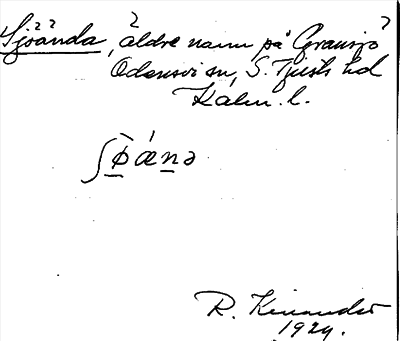 Sjöända, äldre namn på Gransjö
Odensvi sn, S. Tjusts hd
Kalm. l.
ʃɸ̀ǽnə
R. Kinander
1924.